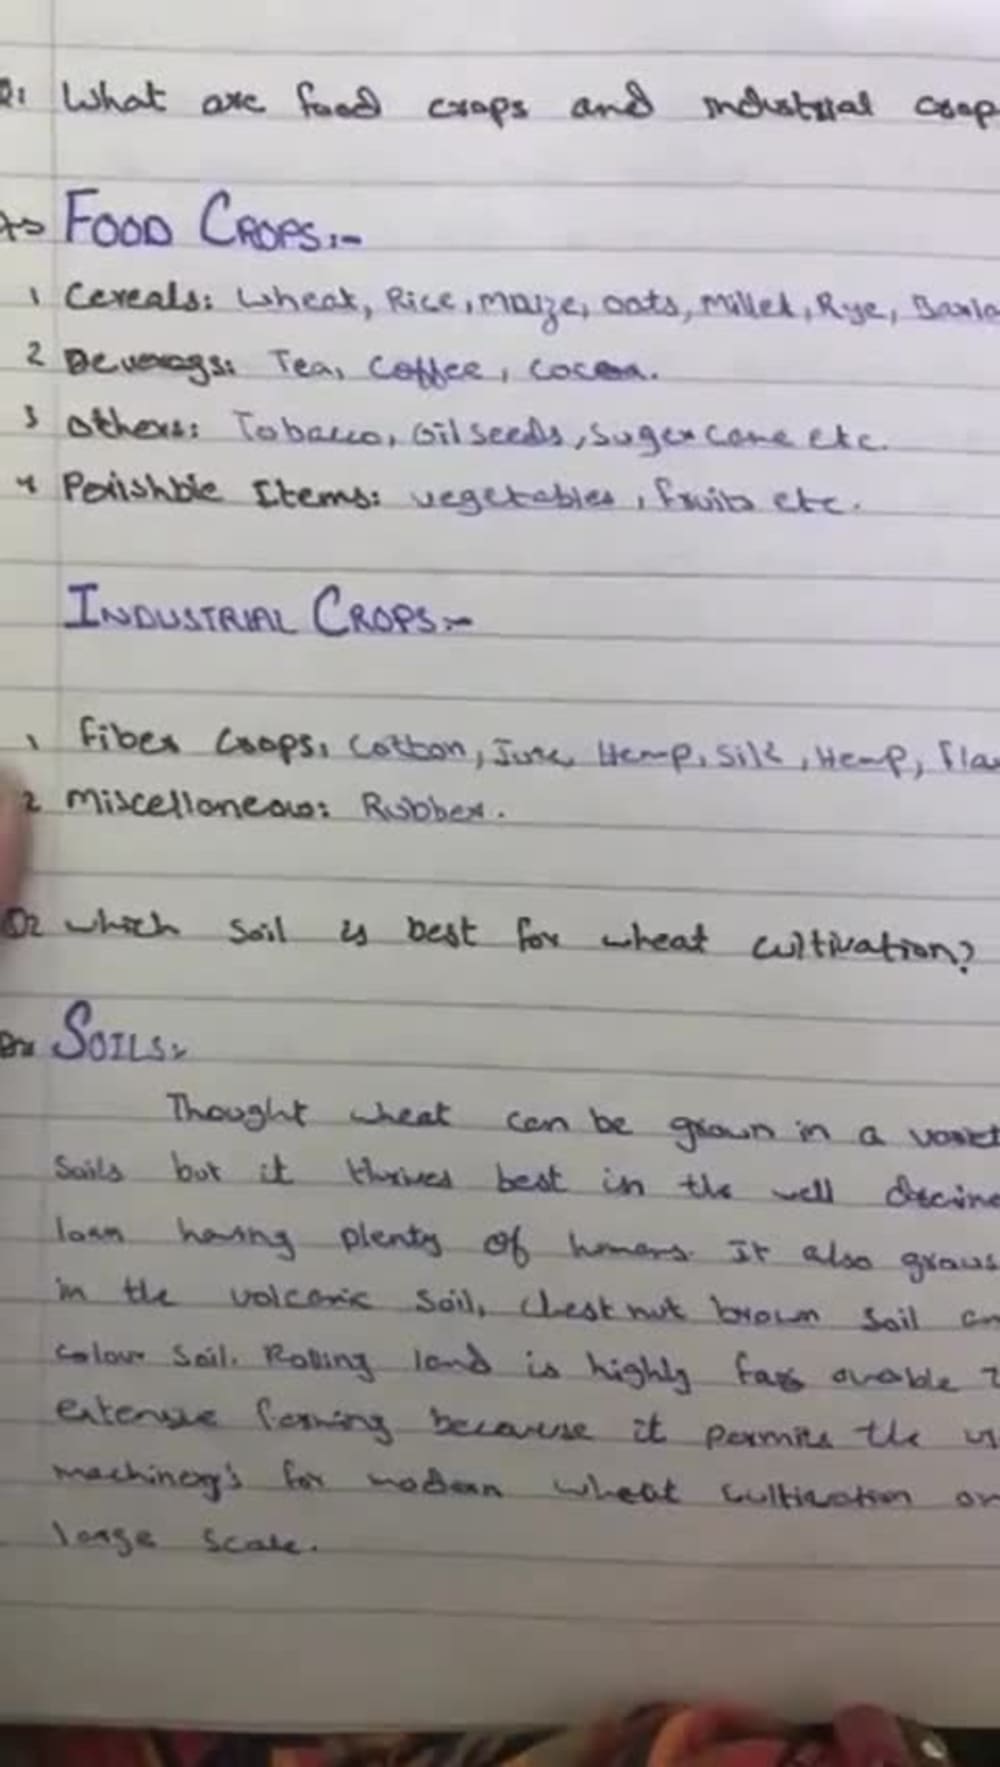 Q1 What are food crops and industrial crop
FOOD CROPS:-
1 Cereals: Wheat, Rice, Maize, oats, Millet, Rye, Barle
2 Beverags: Tea, Coffee, cocoa.
3 others: Tobacco, Oil seeds, Sugercane etc.
4 Perishble Items: vegetables, fruits etc.
INDUSTRIAL CROPS:-
1 Fiber Crops: Cotton, Jute, Hemp, Silk, Hemp, Fla
2 Miscellaneous: Rubber.
Q2 which soil is best for wheat cultivation?
Ans SOILS:
Thought wheat can be grown in a variet
Soils but it thrives best in the well
loam having plenty of It also grows
in the volcanic soil, chestnut brown soil an
colour soil. Rolling land is highly
extensive farming because it permits the us
machinery's for modern wheat cultivation on
large scale.